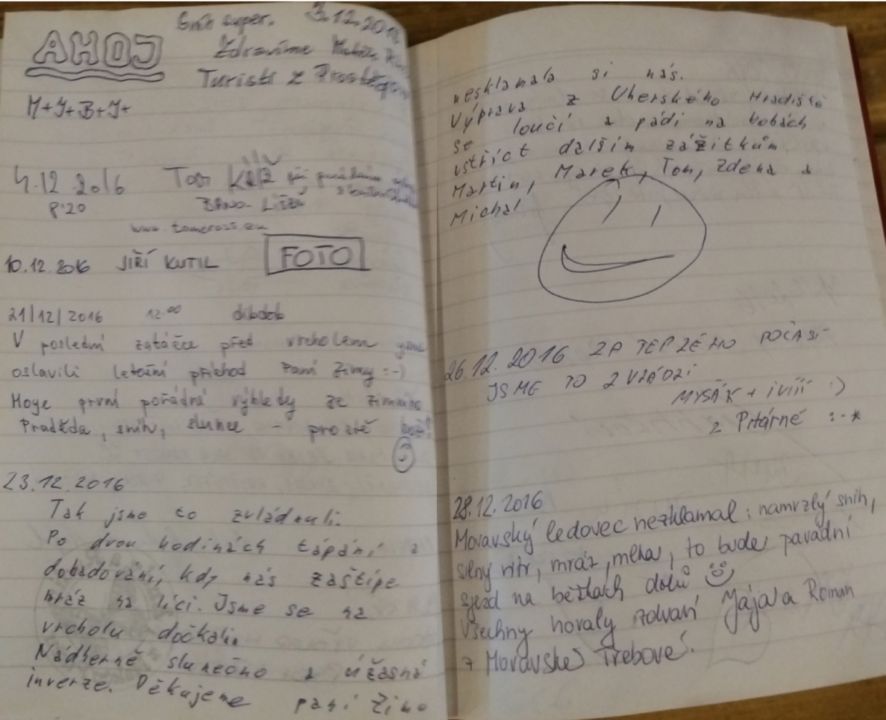 3.12.2016
Sníh super.
AHOJ
Zdravíme
Turisti z Prostějova
M+J+B+J+
4.12 2016 Tom KŘÍŽ
8:20 BRNO LÍŠEŇ
10.12.2016 JIŘÍ KUTIL FOTO
21/12/2016 12:00
V poslední zatáčce před vrcholem jsme
oslavili letošní příchod Paní Zimy :-)
Moje první pořádné výhledy ze zimního
Praděda, sníh, slunce - prostě
23.12.2016
Tak jsme to zvládnuli.
Po dvou hodinách tápání a
dobadování, kdy nás zaštípe
mráz na líci. Jsme se na
vrcholu dočkali.
Nádherně slunečno a úžasná
inverze. Děkujeme paní Zimo
nesklamala si nás.
Výprava z Uherského Hradiště
se loučí a pádí na bobách
vstříct dalším zážitkům
Martin, Marek, Tom, Zdena a
Michal
26.12.2016 ZA TEPLÉHO POČASÍ
JSME TO ZVLÁDLI
MYŠÁK + :)
z Pitárné :-*
28.12.2016
Moravský ledovec nezklamal: namrzlý sníh,
silný vítr, mráz, mlha, to bude parádní
sjezd na běžkách dolů
Všechny horaly zdraví Jája a Roman
z Moravské Třebové.